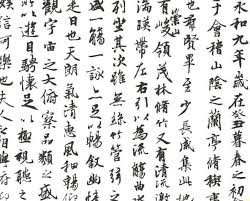 永和九年歲在癸
于會稽山陰之蘭亭脩稧
羣賢畢至少長咸集此地
有崇山峻領茂林脩竹又有清
湍暎帶左右引以為流觴曲水
列坐其次雖無絲竹管弦之
盛一觴一詠亦足以暢敘幽情
是日也天朗氣清惠風和暢仰
觀宇宙之大俯察品類之盛
以遊目騁懷足以極視聽之
娛信可樂也夫人之相與俯仰